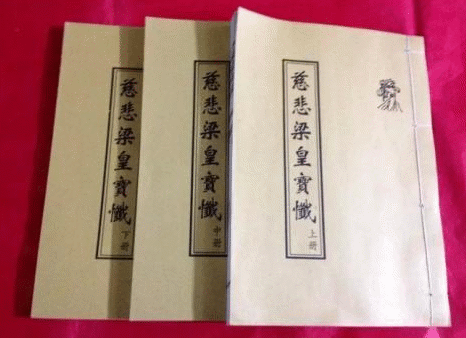 慈悲梁皇寶懺
上册
慈悲梁皇寶懺
中册
慈悲梁皇寶懺
下册